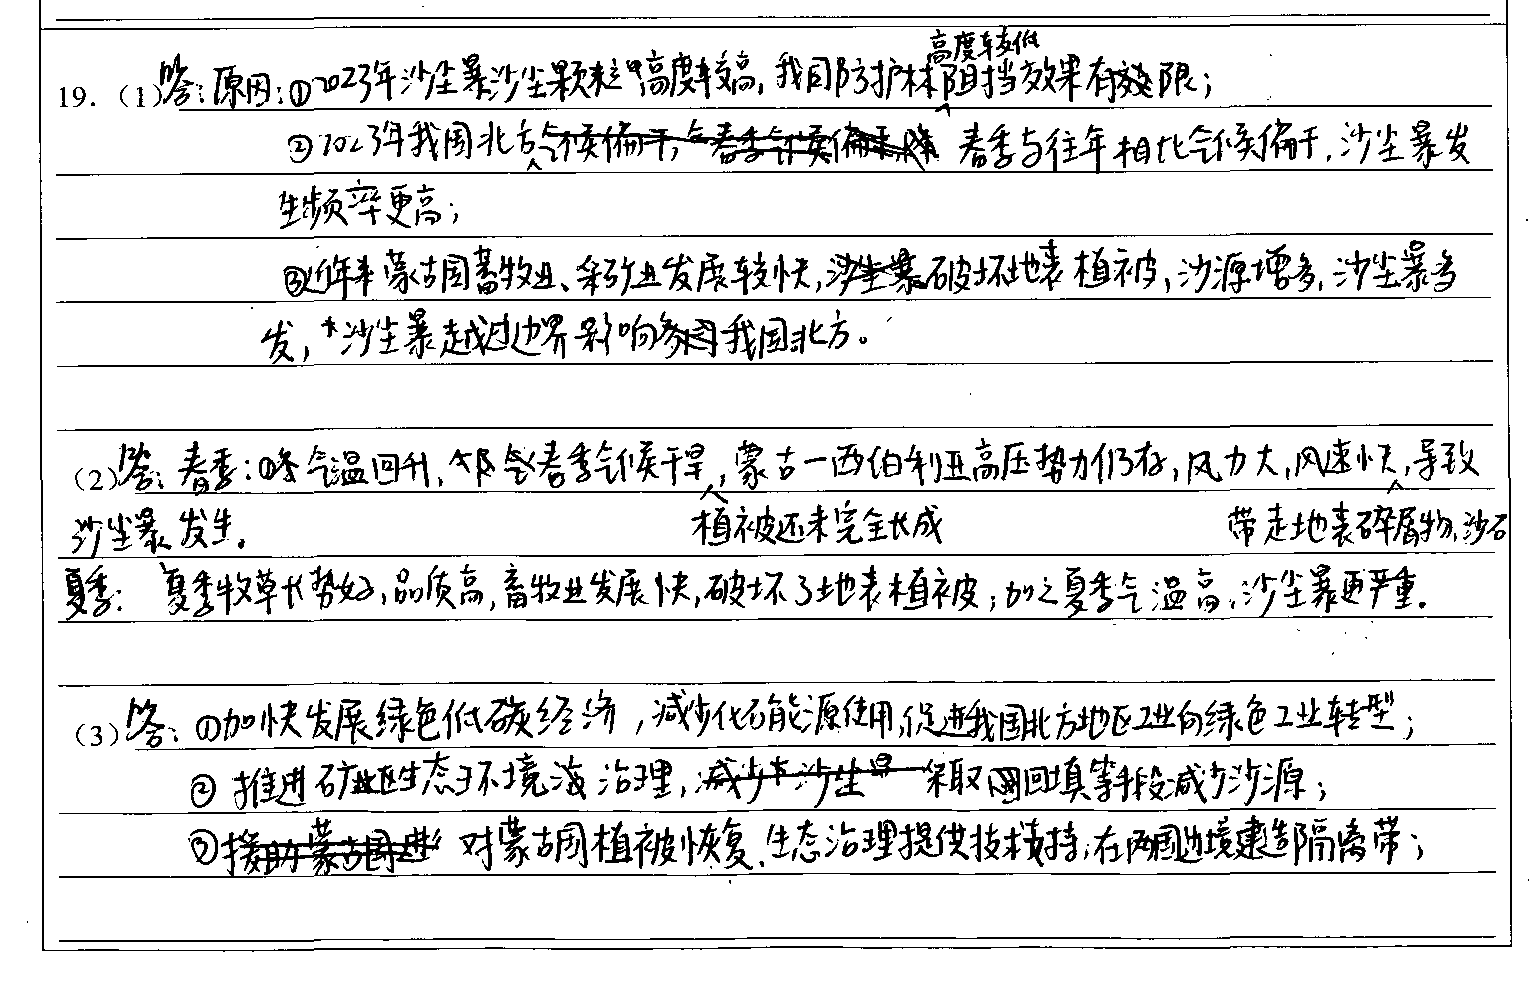 高度较低
19.（1）答：原因：①2023年沙尘暴沙尘颗粒高度较高，我国防护林阻挡效果有限；
②2023年我国北方春季与往年相比气候偏干，沙尘暴发
生频率更高；
③近年来蒙古国畜牧业、采矿业发展较快，破坏地表植被，沙源增多，沙尘暴多
发，沙尘暴越过边界影响我国北方。
（2）答：春季：气温回升，春季气候干旱，蒙古—西伯利亚高压势力仍存，风力大，风速快，导致
沙尘暴发生。 植被还未完全长成 带走地表碎屑物，沙石
夏季：夏季牧草长势好，品质高，畜牧业发展快，破坏了地表植被；加之夏季气温高，沙尘暴更严重。
（3）答：①加快发展绿色低碳经济，减少化石能源使用，促进我国北方地区工业向绿色工业转型；
②推进矿业区生态环境治理，采取回填等手段减少沙源；
③对蒙古国植被恢复、生态治理提供技术支持，在两国边境建造隔离带；